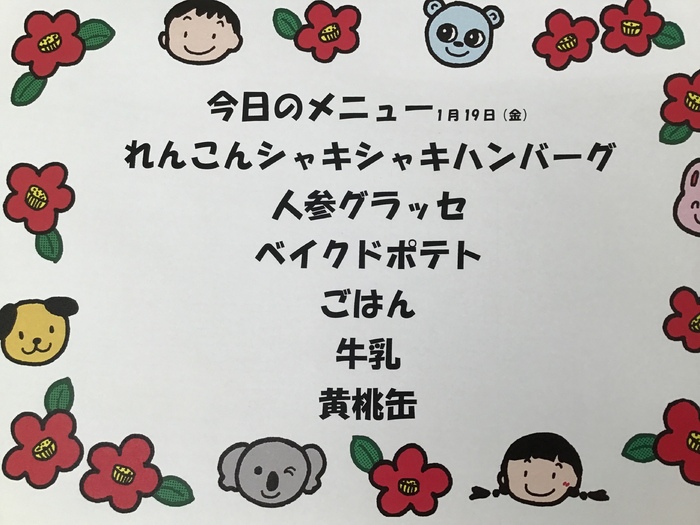 今日のメニュー1月19日（金）
れんこんシャキシャキハンバーグ
人参グラッセ
ベイクドポテト
ごはん
牛乳
黄桃缶